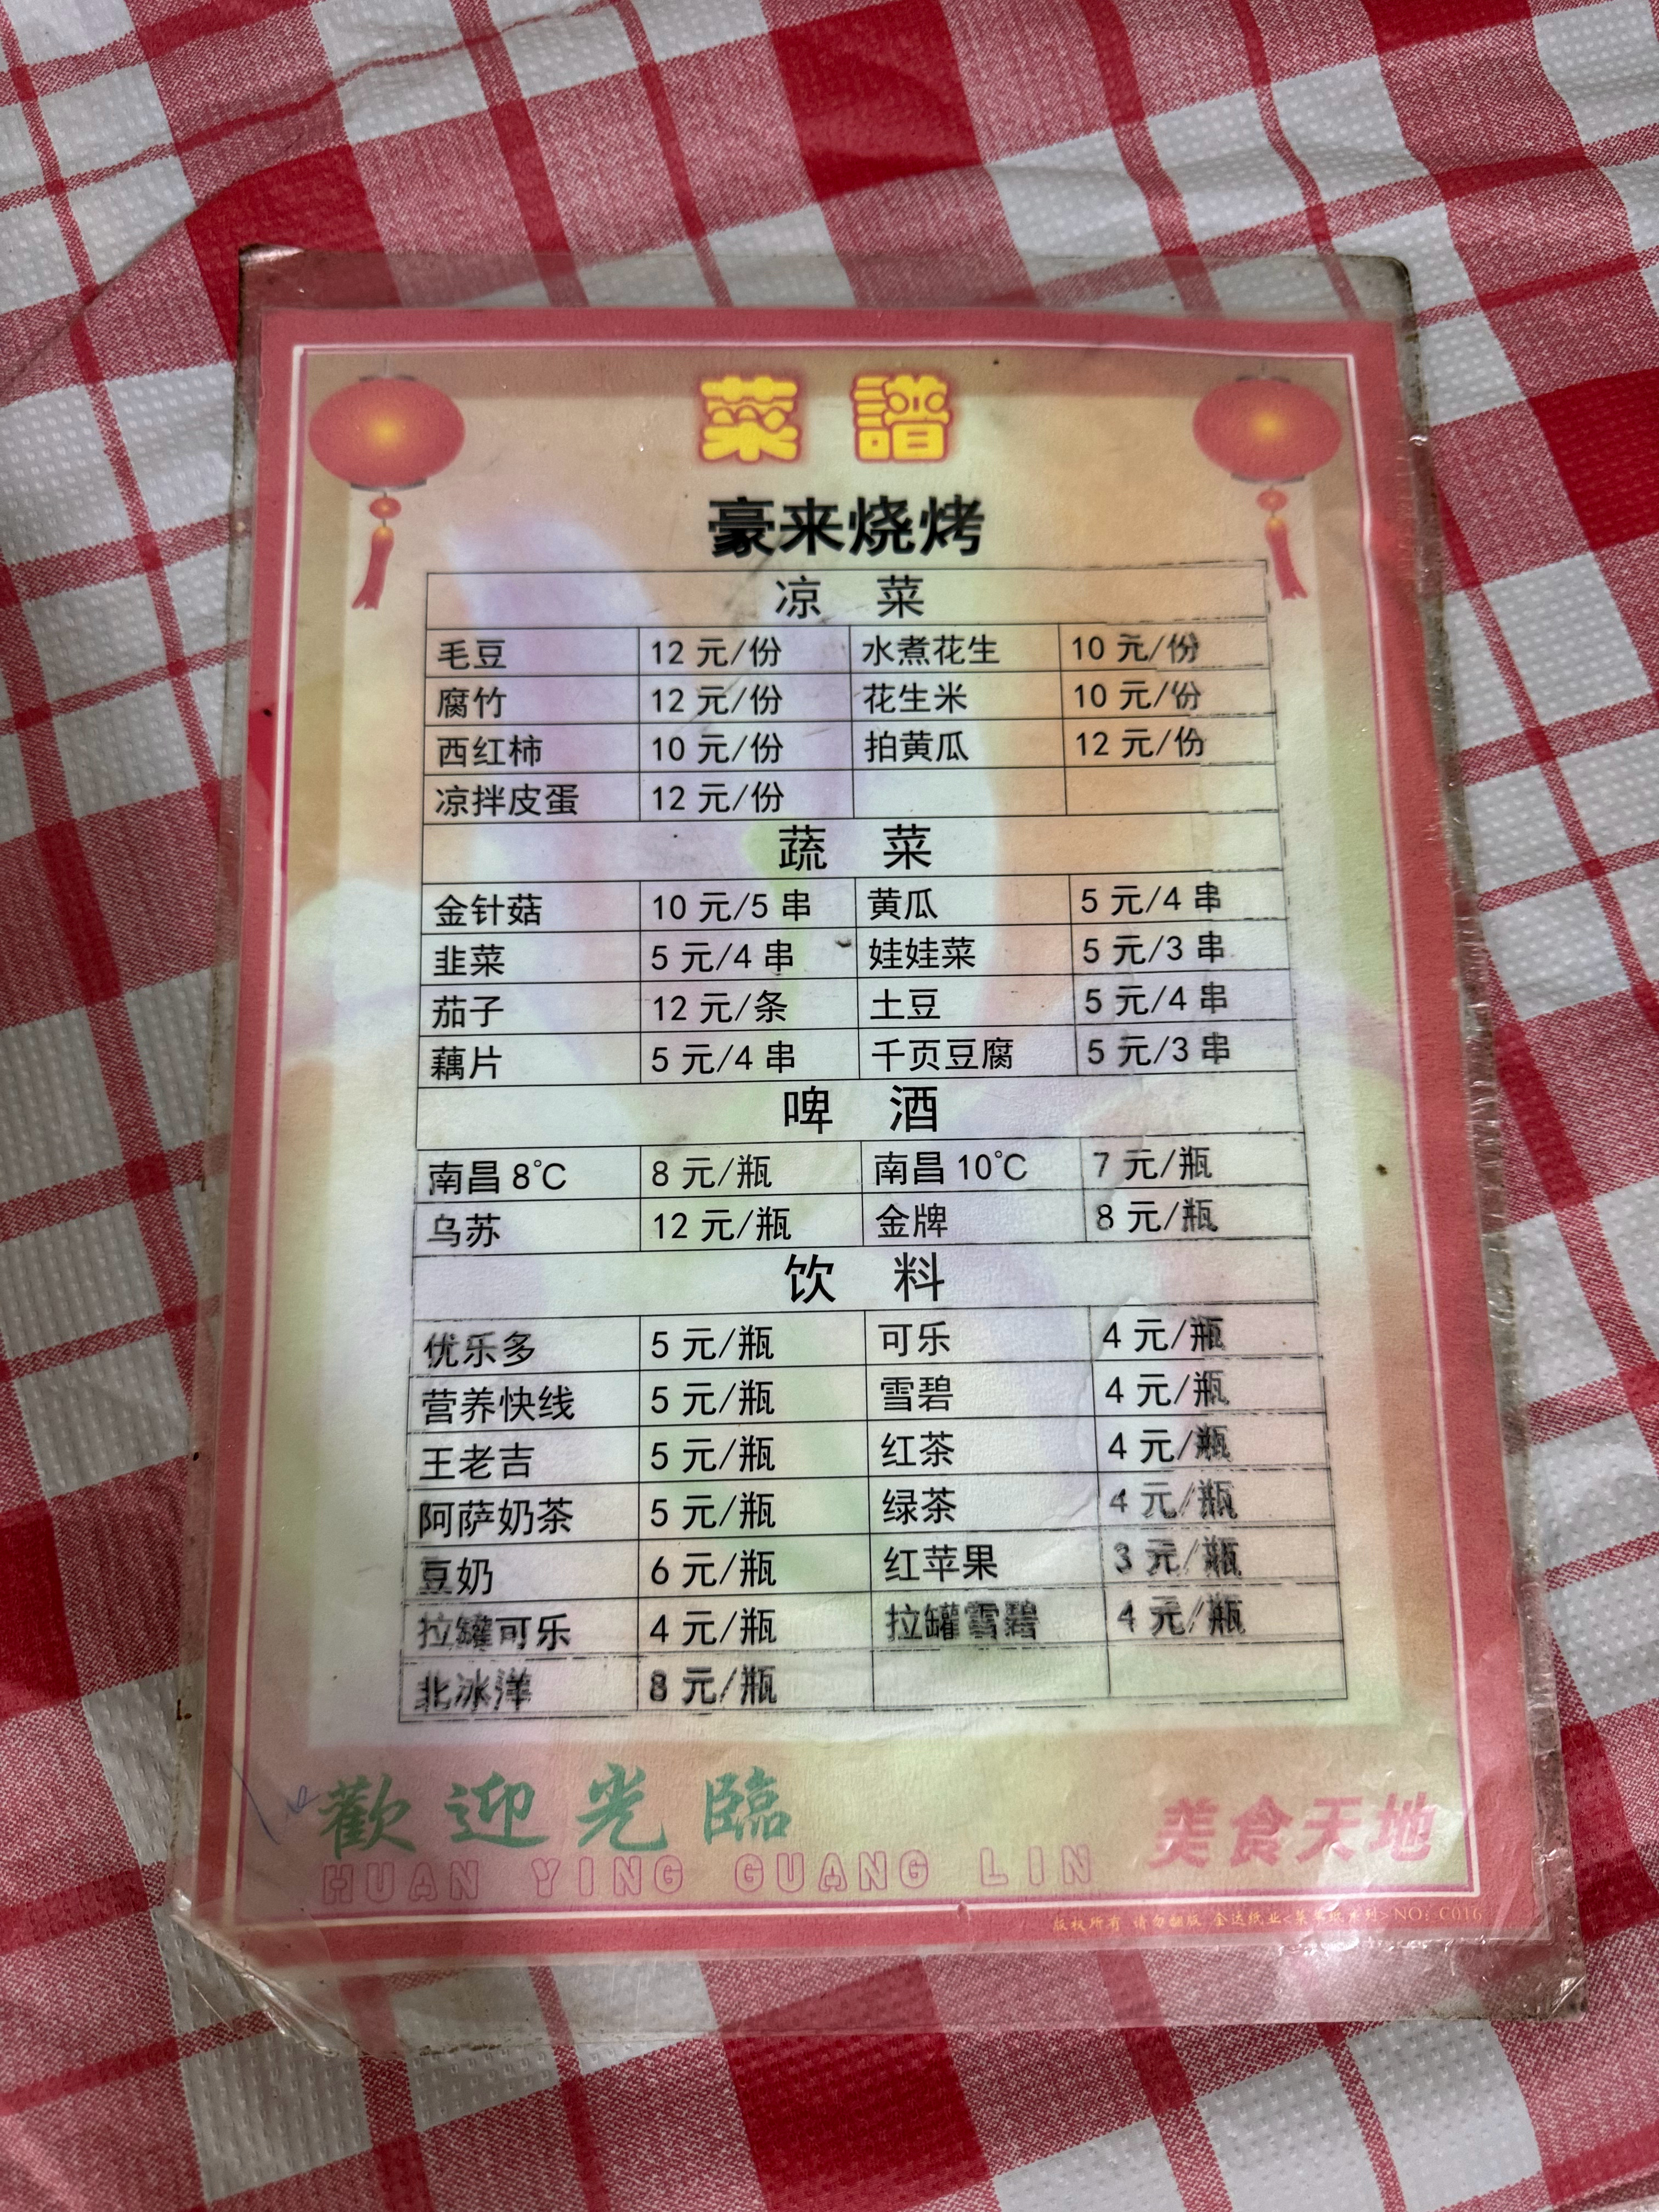 菜 譜
豪来烧烤
凉 菜
毛豆 12 元/份 水煮花生 10 元/份
腐竹 12 元/份 花生米 10 元/份
西红柿 10 元/份 拍黄瓜 12 元/份
凉拌皮蛋 12 元/份
蔬 菜
金针菇 10 元/5 串 黄瓜 5 元/4 串
韭菜 5 元/4 串 娃娃菜 5 元/3 串
茄子 12 元/条 土豆 5 元/4 串
藕片 5 元/4 串 千页豆腐 5 元/3 串
啤 酒
南昌 8℃ 8 元/瓶 南昌 10℃ 7 元/瓶
乌苏 12 元/瓶 金牌 8 元/瓶
饮 料
优乐多 5 元/瓶 可乐 4 元/瓶
营养快线 5 元/瓶 雪碧 4 元/瓶
王老吉 5 元/瓶 红茶 4 元/瓶
阿萨奶茶 5 元/瓶 绿茶 4 元/瓶
豆奶 6 元/瓶 红苹果 3 元/瓶
拉罐可乐 4 元/瓶 拉罐雪碧 4 元/瓶
北冰洋 8 元/瓶
歡迎光臨 美食天地
HUAN YING GUANG LIN
版权所有 请勿翻版 金达纸业 NO: C016